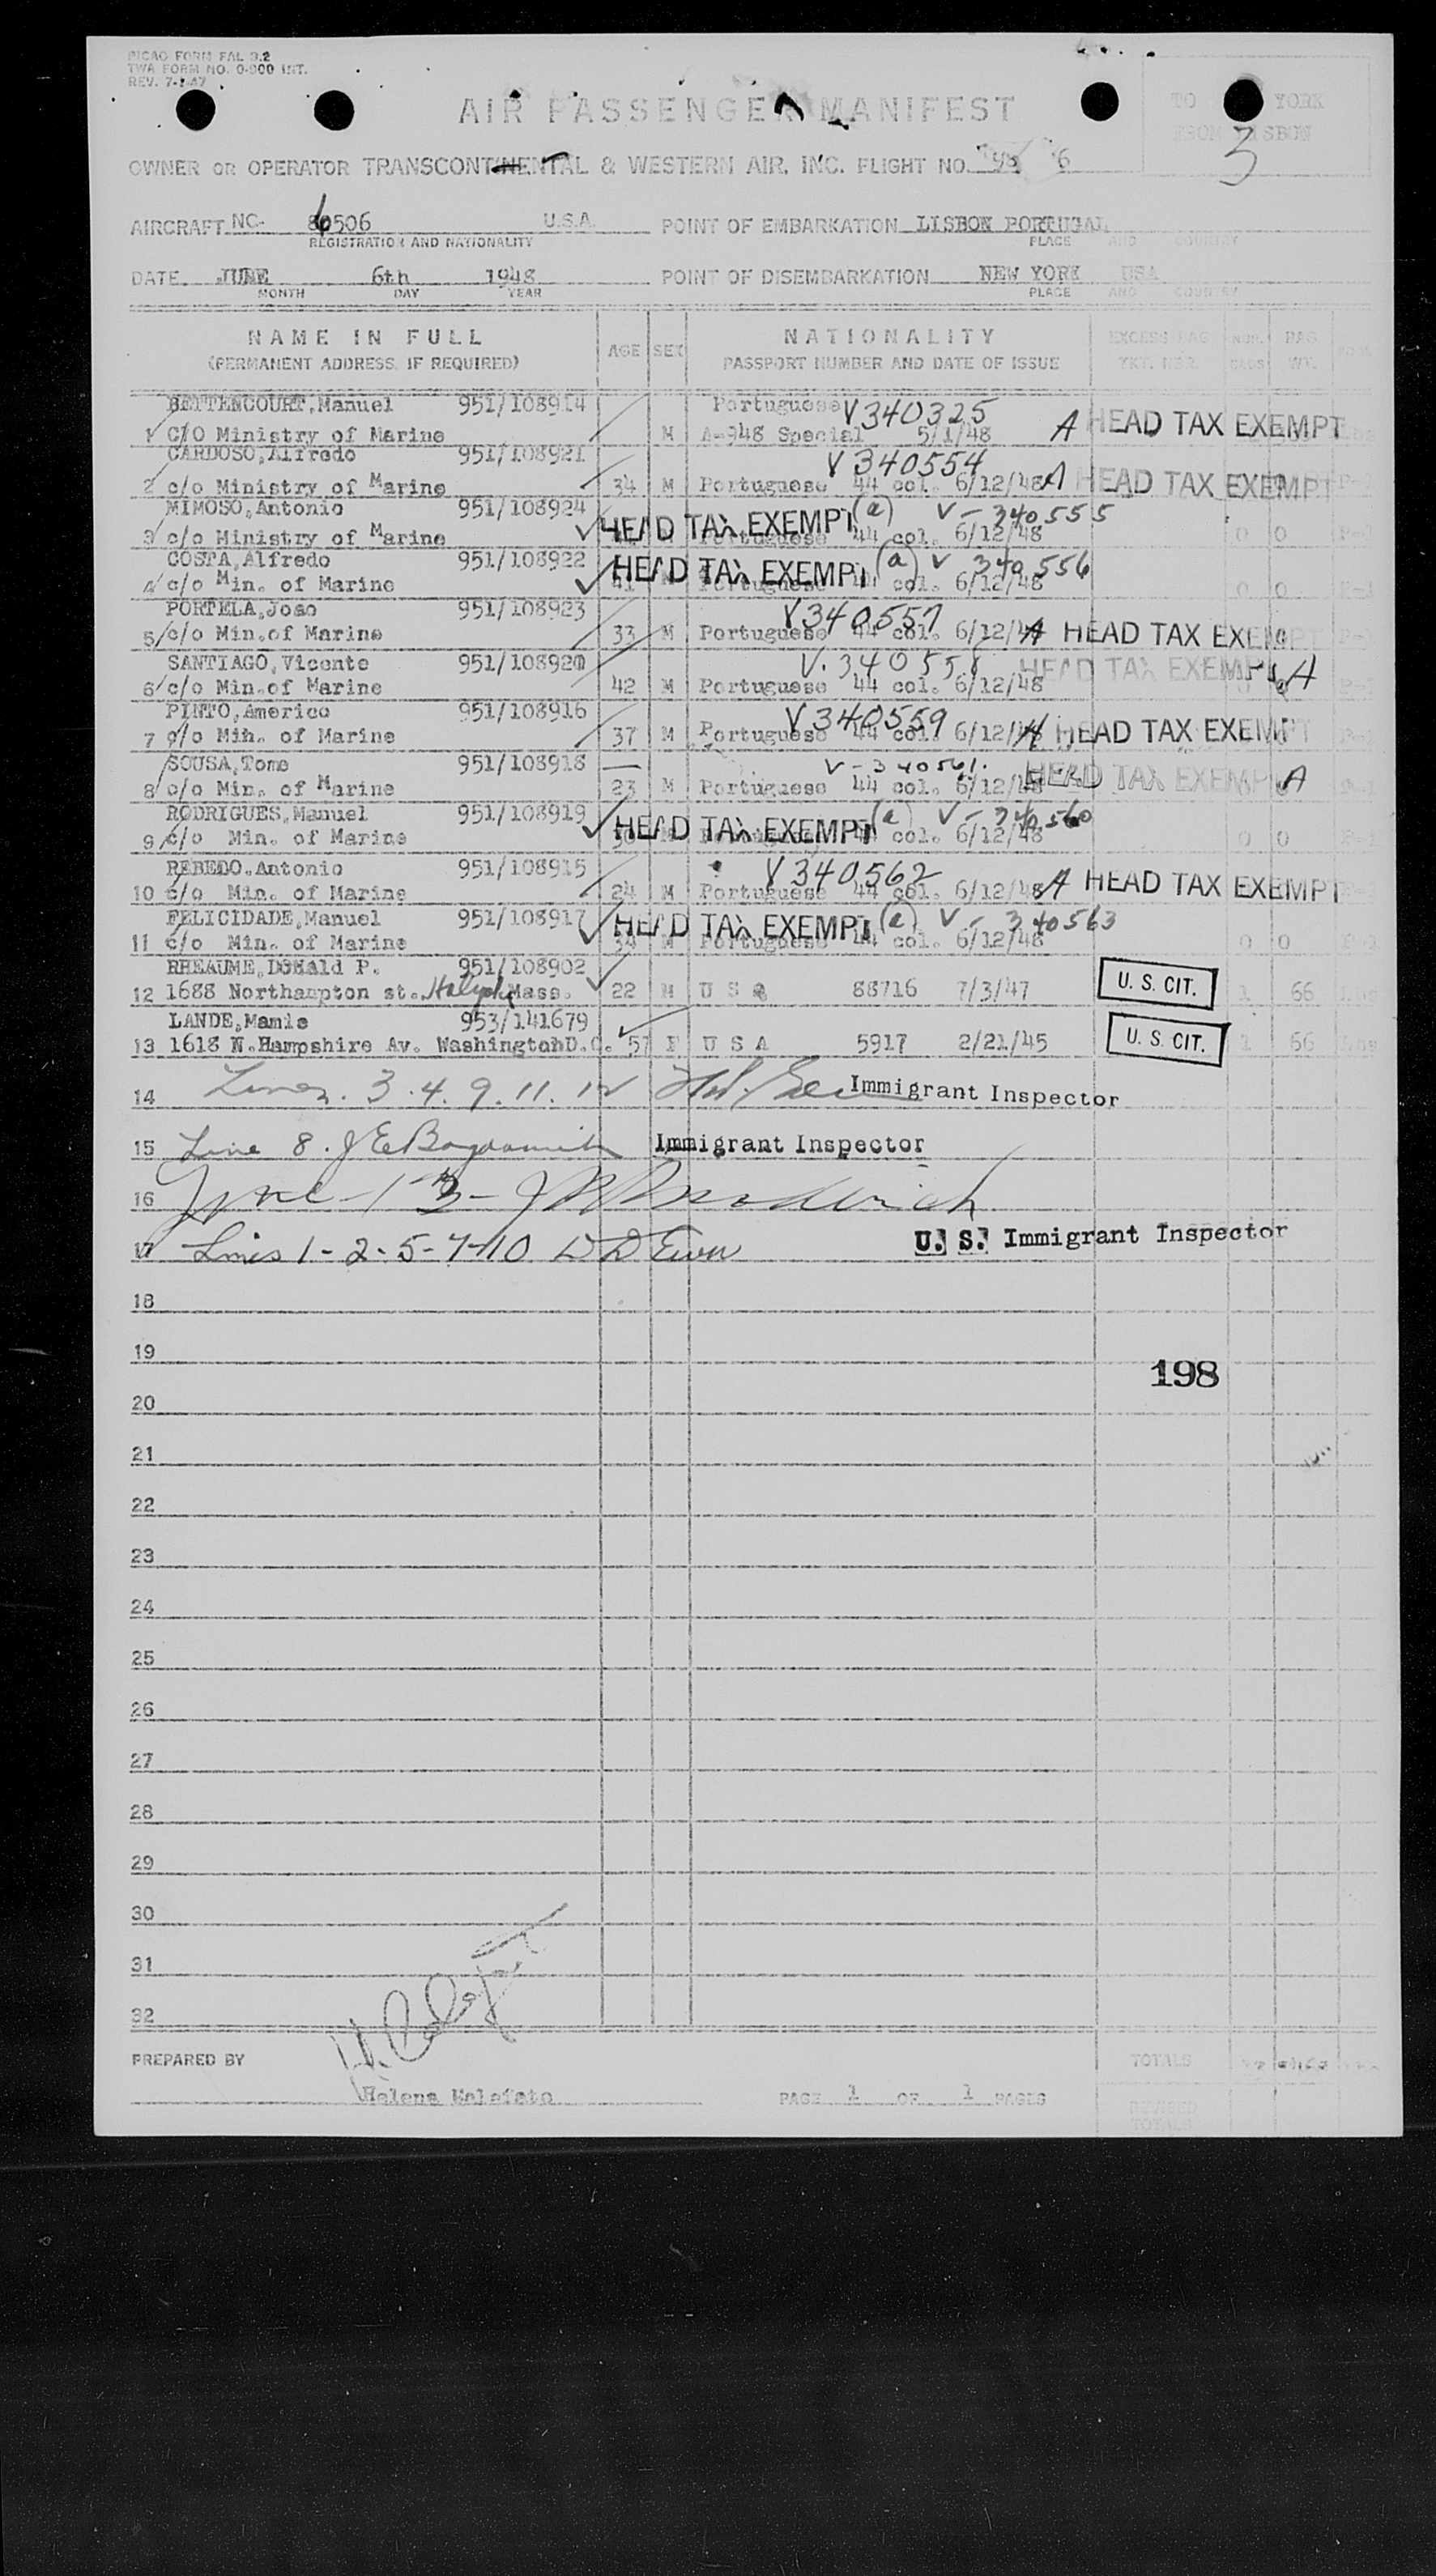 PICAO FORM FAL 3.2
TWA FORM NO. 0-900 INT.
REV. 7-1-47
AIR PASSENGER MANIFEST
TO YORK
FROM LISBON
3
OWNER OR OPERATOR TRANSCONTINENTAL & WESTERN AIR, INC. FLIGHT NO. 6
AIRCRAFT NC- 86506 U.S.A. POINT OF EMBARKATION LISBON PORTUGAL
REGISTRATION AND NATIONALITY PLACE AND COUNTRY
DATE JUNE 6th 1948 POINT OF DISEMBARKATION NEW YORK USA
MONTH DAY YEAR PLACE AND COUNTRY
NAME IN FULL AGE SEX NATIONALITY EXCESS BAG. BAG
(PERMANENT ADDRESS, IF REQUIRED) PASSPORT NUMBER AND DATE OF ISSUE TKT. NBR. BAGS WT.
BETTENCOURT, Manuel 951/108914 Portuguese V340325
1 C/O Ministry of Marine M A-948 Special 5/1/48 A HEAD TAX EXEMPT
CARDOSO, Alfredo 951/108921 V340554
2 c/o Ministry of Marine 34 M Portuguese 44 col. 6/12/48 A HEAD TAX EXEMPT
MIMOSO, Antonio 951/108924 HEAD TAX EXEMPT (a) V-340555
3 c/o Ministry of Marine Portuguese 44 col. 6/12/48 0 0
COSTA, Alfredo 951/108922 HEAD TAX EXEMPT (a) V 340556
4 c/o Min. of Marine 41 Portuguese 44 col. 6/12/48 0 0
PORTELA, Joao 951/108923 V340557
5 c/o Min. of Marine 33 M Portuguese 44 col. 6/12/48 A HEAD TAX EXEMPT
SANTIAGO, Vicente 951/108920 V.340558 HEAD TAX EXEMPT A
6 c/o Min. of Marine 42 M Portuguese 44 col. 6/12/48
PINTO, Americo 951/108916 V340559
7 c/o Min. of Marine 37 M Portuguese 44 col. 6/12/48 A HEAD TAX EXEMPT
SOUSA, Tome 951/108918 V-340561.
8 c/o Min. of Marine 23 M Portuguese 44 col. 6/12/48 HEAD TAX EXEMPT A
RODRIGUES, Manuel 951/108919 HEAD TAX EXEMPT (a) V-340560
9 c/o Min. of Marine Portuguese 44 col. 6/12/48 0 0
REBELO, Antonio 951/108915 V340562
10 c/o Min. of Marine 24 M Portuguese 44 col. 6/12/48 A HEAD TAX EXEMPT
FELICIDADE, Manuel 951/108917 HEAD TAX EXEMPT (a) V-340563
11 c/o Min. of Marine 34 M Portuguese 44 col. 6/12/48 0 0
RHEAUME, Donald P. 951/108902
12 1688 Northampton st. Holyoke Mass. 22 M U S A 88716 7/3/47 U. S. CIT. 1 66
LANDE, Mamie 953/141679
13 1618 N. Hampshire Av. Washington D.C. 57 F U S A 5917 2/21/45 U. S. CIT. 1 66
14 Lines. 3.4.9.11.12 Immigrant Inspector
15 Line 8. J E Immigrant Inspector
16 Line - 13 -
17 Lines 1-2-5-7-10 W D Ewen U. S. Immigrant Inspector
18
19
198
20
21
22
23
24
25
26
27
28
29
30
31
32
PREPARED BY TOTALS
Helena PAGE 1 OF 1 PAGES REVISED
TOTALS